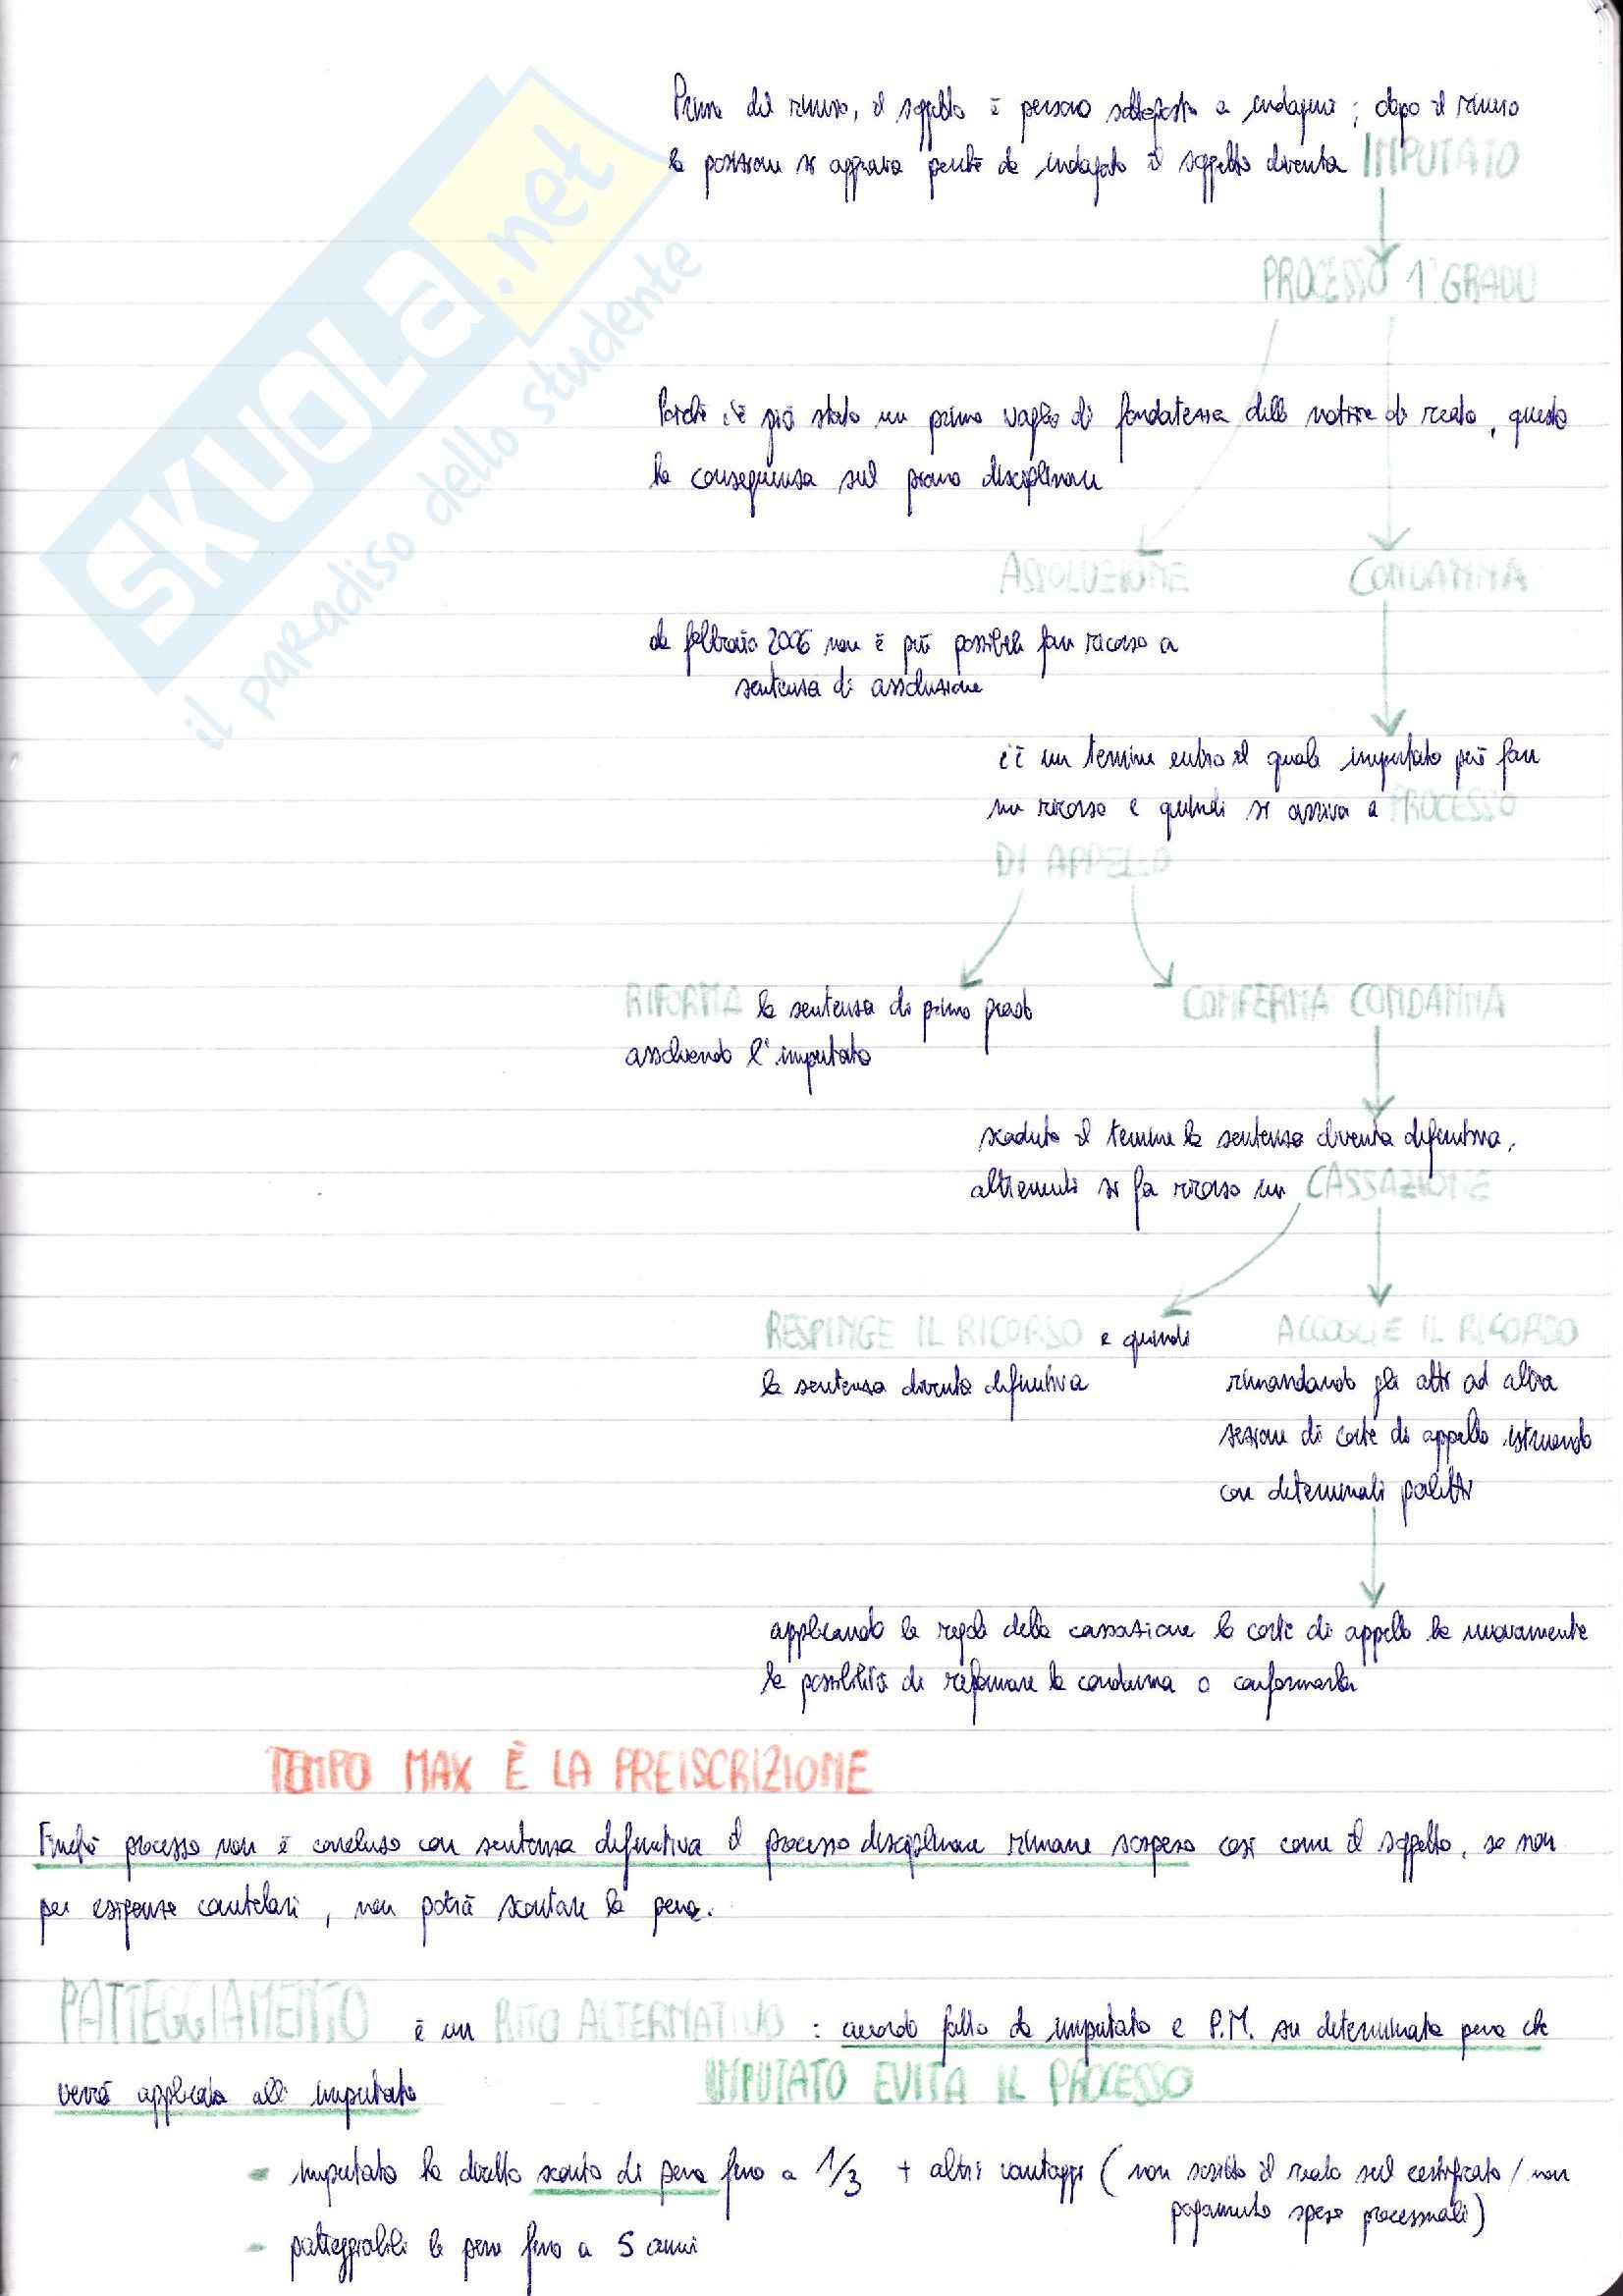 Prima del rinvio, il soggetto è persona sottoposta a indagini ; dopo il rinvio
la posizione si aggrava perché da indagato il soggetto diventa IMPUTATO
SKUOLA.net
il paradiso dello studente
PROCESSO 1° GRADO
Poiché c'è già stato un primo vaglio di fondatezza della notizia di reato, questo
ha conseguenza sul piano disciplinare
ASSOLUZIONE CONDANNA
da febbraio 2006 non è più possibile fare ricorso a
sentenza di assoluzione
c'è un termine entro il quale imputato può fare
un ricorso e quindi si arriva a PROCESSO
DI APPELLO
RIFORMA la sentenza di primo grado
assolvendo l'imputato
CONFERMA CONDANNA
scaduto il termine la sentenza diventa definitiva,
altrimenti si fa ricorso in CASSAZIONE
RESPINGE IL RICORSO e quindi
la sentenza diventa definitiva
ACCOGLIE IL RICORSO
rimandando gli atti ad altra
sezione di corte di appello istruendo
con determinati paletti
applicando le regole della cassazione la corte di appello ha nuovamente
la possibilità di riformare la condanna o confermarla
TEMPO MAX È LA PREISCRIZIONE
Finché processo non è concluso con sentenza definitiva il processo disciplinare rimane sospeso così come il soggetto, se non
per esigenze cautelari, non potrà scontare la pena.
PATTEGGIAMENTO è un RITO ALTERNATIVO : accordo fatto da imputato e P.M. su determinata pena che
verrà applicata all'imputato IMPUTATO EVITA IL PROCESSO
- imputato ha diritto sconto di pena fino a 1/3 + altri vantaggi ( non scritto il reato sul certificato / non
pagamento spese processuali )
- patteggiabili le pene fino a 5 anni